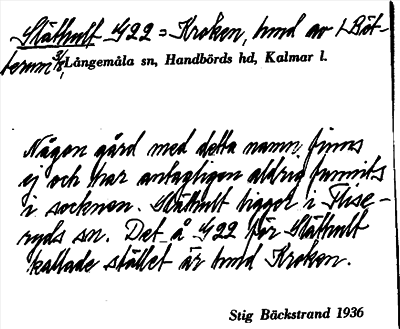 Släthult G22 = Kroken, hmd av 1 Böt-
terum 2/8, Långemåla sn, Handbörds hd, Kalmar l.
Någon gård med detta namn finns
ej och har antagligen aldrig funnits
i socknen. Släthult ligger i Flise-
ryds sn. Det å G22 för Släthult
kallade stället är hmd Kroken.
Stig Bäckstrand 1936